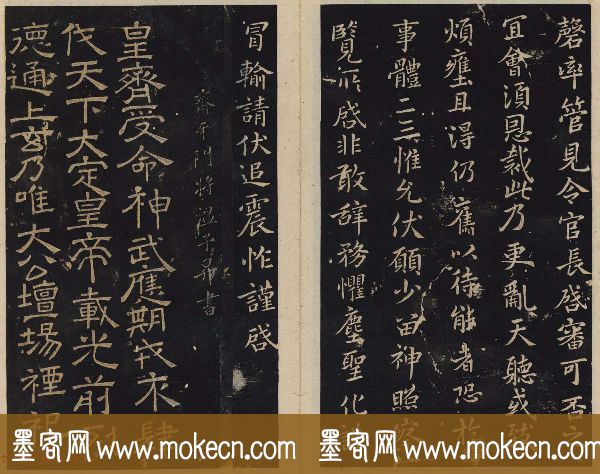 磬率管見令官長啓審可否之
宜會須恩裁此乃更亂天聽或
煩壅且得仍舊以待能者恐
事體二三惟允伏願少留神照
覽所啓非敢辞務懼塵聖化
冒輸請伏追震怍謹啓
門將溫子昇書
皇齊受命神武應期木肆
伐天下大定皇帝載光前
德通上玄乃唯大公壇場禋祀
墨客网 www.mokecn.com
墨客网 www.mokecn.com